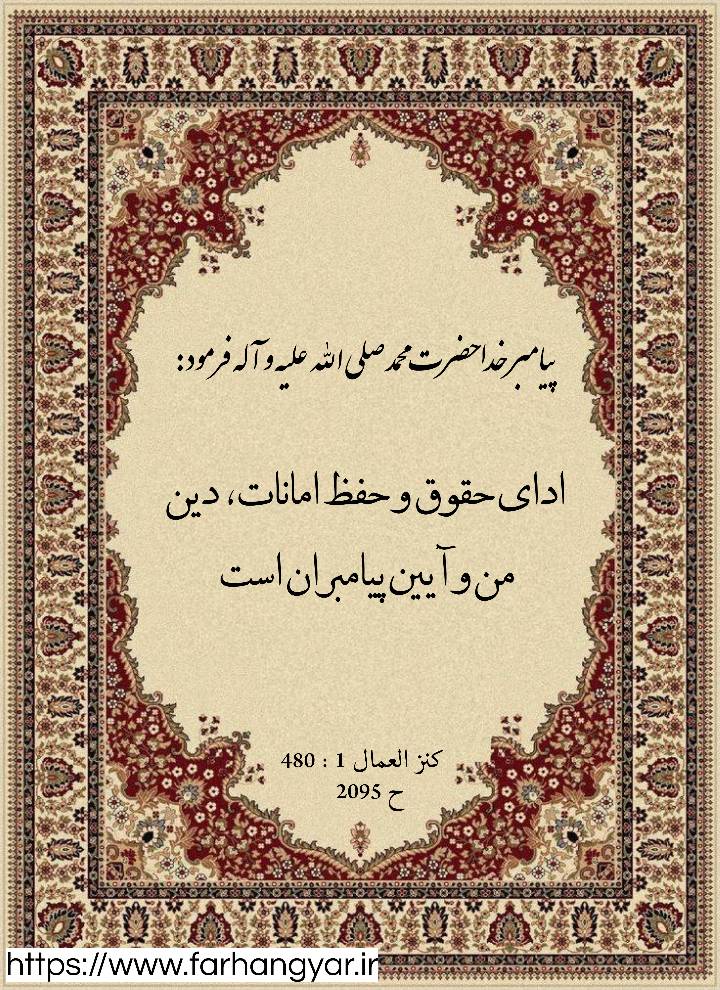 پیامبر خدا حضرت محمد صلی الله علیه و آله فرمود:
ادای حقوق و حفظ امانات، دین
من و آیین پیامبران است
کنز العمال 1 : 480
ح 2095
https://www.farhangyar.ir